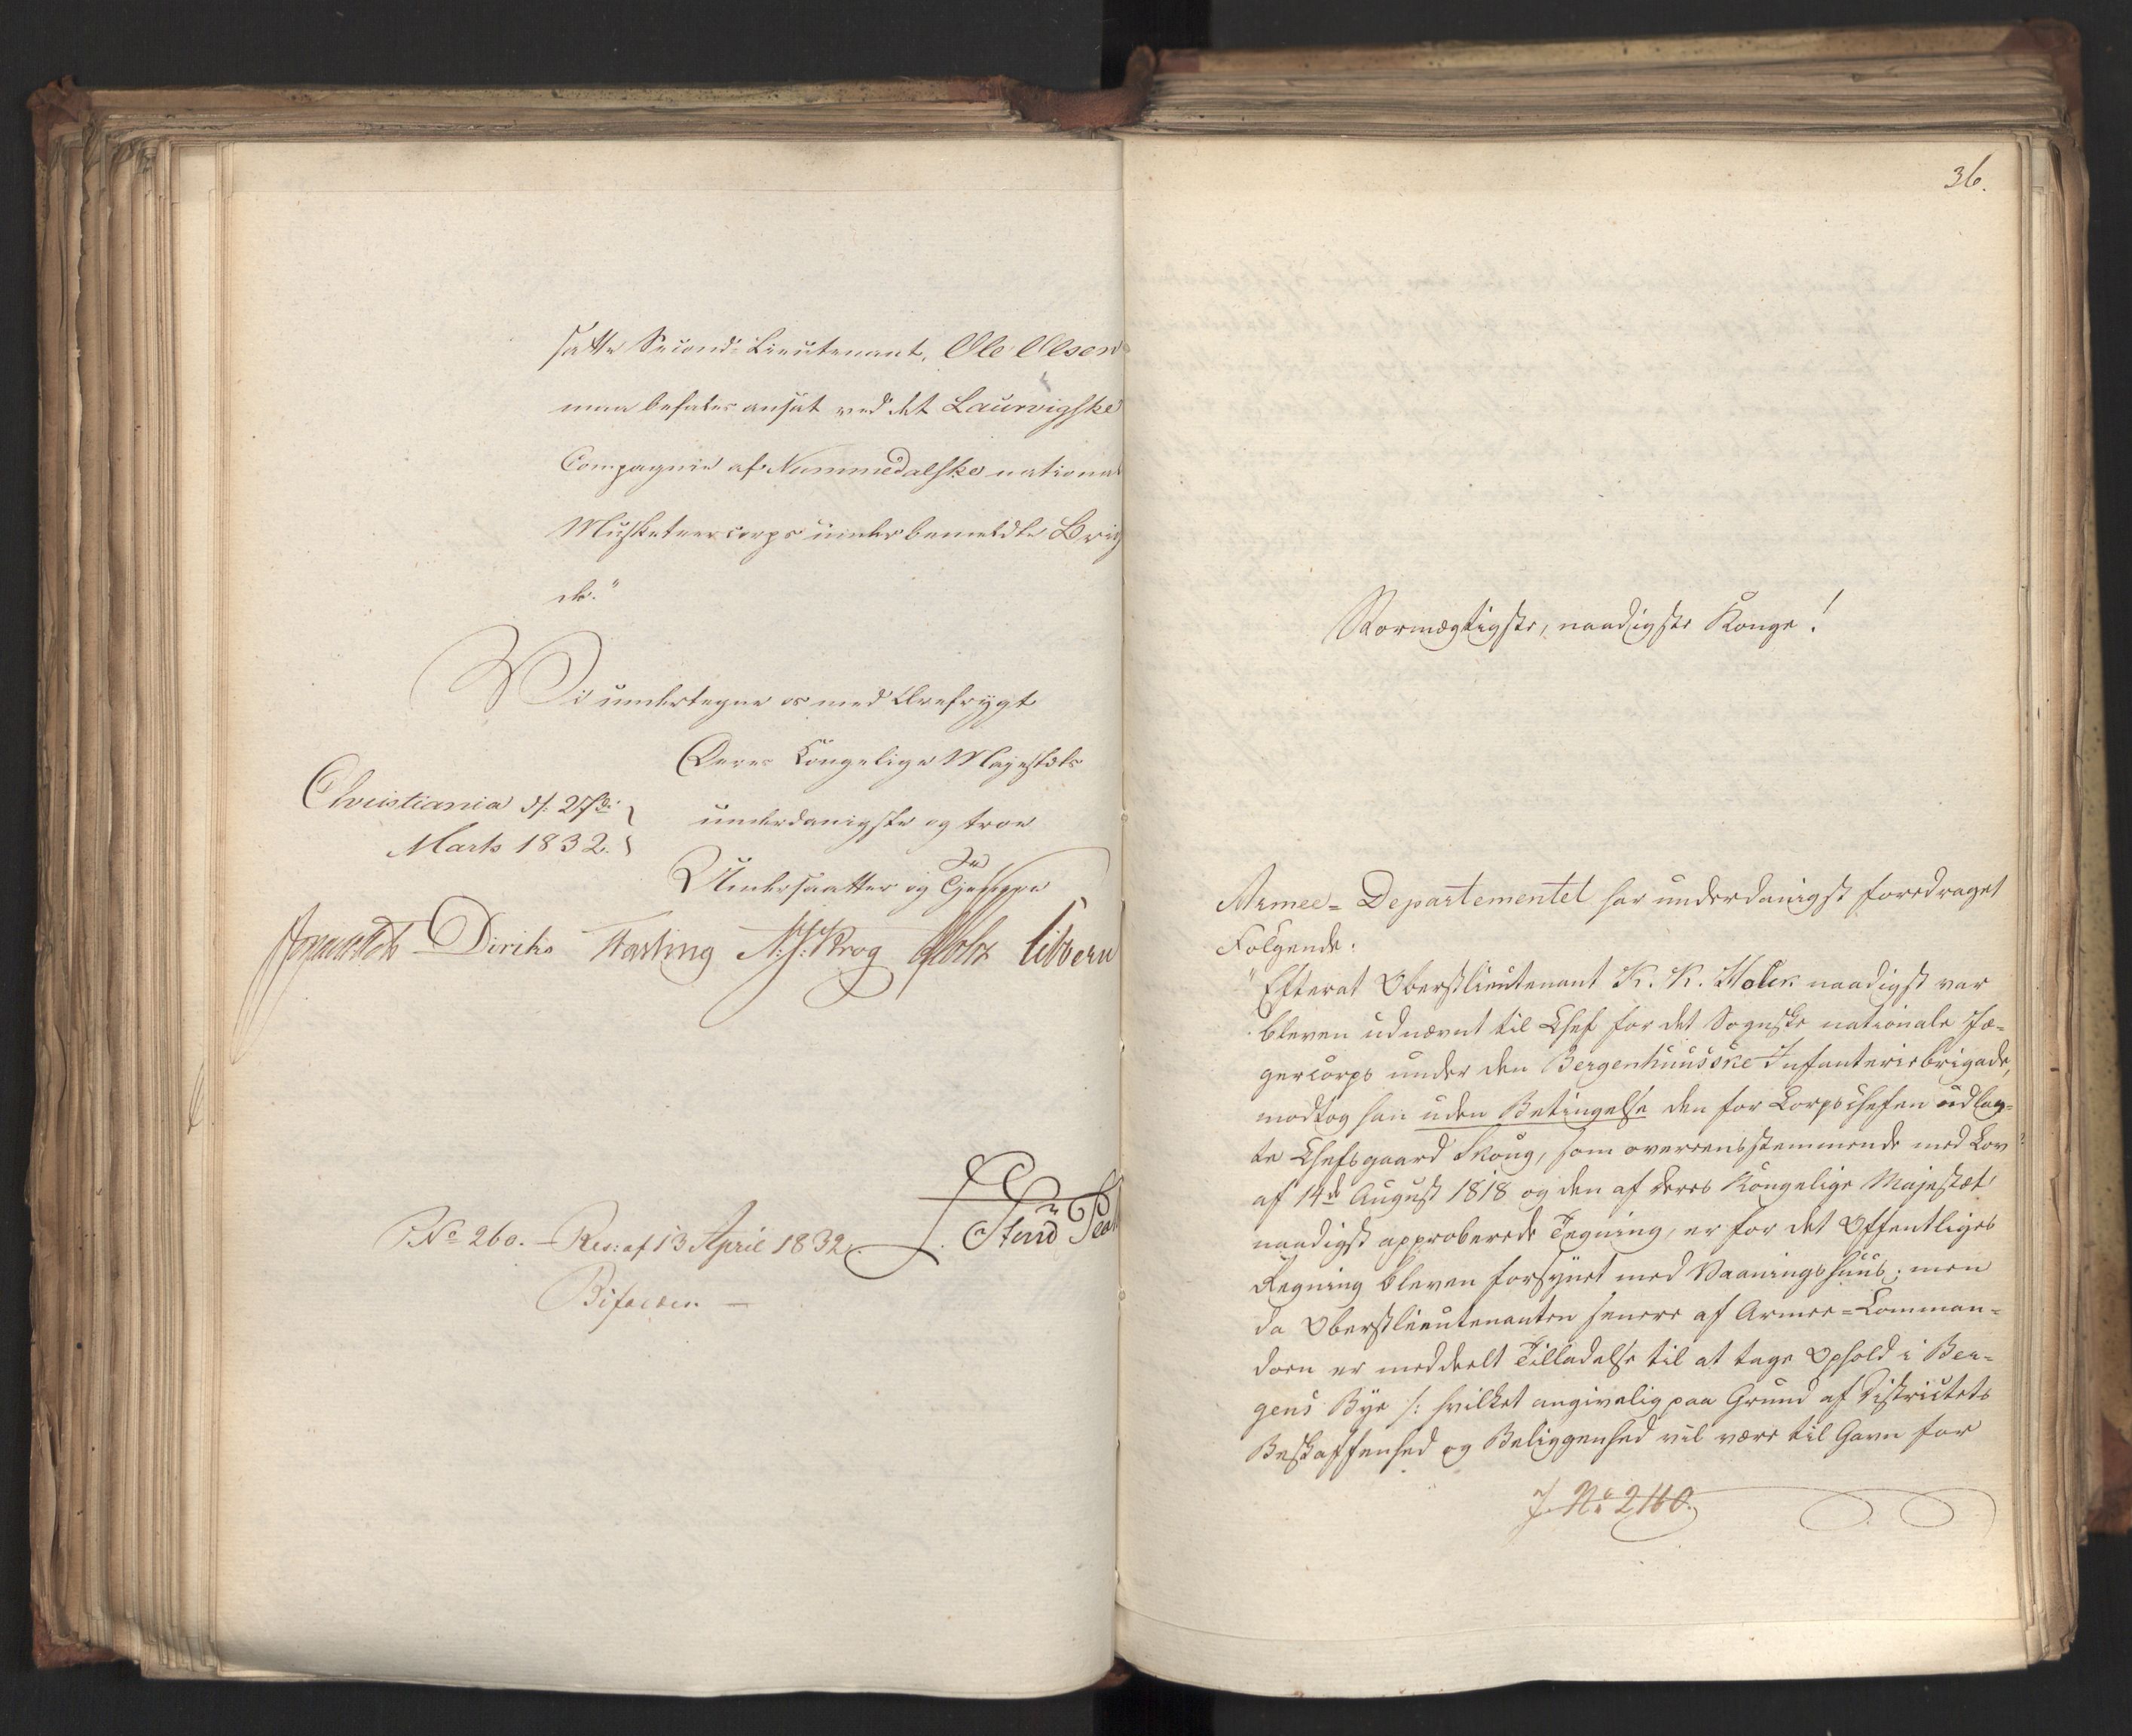 satte Second-Lieutenant, Ole Olsen
maa befales ansat ved det Laurvigske
Compagnie af Nummedalske national
Musketeercorps under bemeldte Brig
de."
Vi undertegne os med Ærefrygt
Deres Kongelige Majestæts
underdanigste og troe
Undersaatter og Tjenere
Christiania d: 27de
Marts 1832.
Diriks Fasting N. J. Krog Holst Vibe
No 260. – Res: af 13 April 1832.
Bifaldes. –
36.
Stormægtigste, naadigste Konge!
Armee-Departementet har underdanigst foredraget
Følgende:
"Efterat Oberstlieutenant K. K. Holck naadigst var
bleven udnævnt til Chef for det Sognske nationale Jæ-
gercorps under den Bergenhuusske Infanteriebrigade,
modtog han uden Betingelse den for Corpschefen udlag-
te Chefsgaard Skoug, som overeensstemmende med Lov
af 14de August 1818 og den af Deres Kongelige Majestæt
naadigst approberede Tegning, er for det Offentliges
Regning bleven forsynet med Vaaningshuus; men
da Oberstlieutenanten senere af Armee-Comman-
doen er meddeelt Tilladelse til at tage Ophold i Ber-
gens Bye /: hvilket angivelig paa Grund af Districtets
Beskaffenhed og Beliggenhed vil være til Gavn for
J. No 2160.